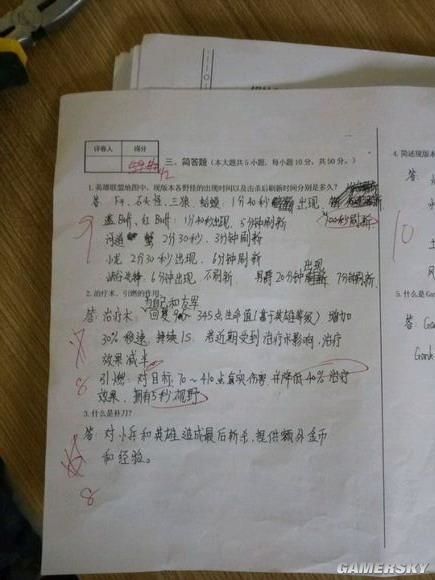 评卷人 得分
三、简答题（本大题共5小题，每小题10分，共50分。）
1. 英雄联盟地图中，现版本各野怪的出现时间以及击杀后刷新时间分别是多久？
答: F4、石头怪、三狼、蛤蟆: 1分40秒 出现, 100秒刷新
蓝Buff、红Buff: 1分40秒出现, 5分钟刷新
河道蟹 2分30秒, 3分钟刷新
小龙 2分30秒出现, 6分钟刷新
峡谷先锋: 6分钟出现 不刷新 男爵20分钟出现 7分钟刷新
9
2. 治疗术、引燃的作用
与自己和友军
答: 治疗术: 回复90~345点生命值(基于英雄等级) 增加
30%移速, 持续1S. 若近期受到治疗术影响, 治疗
效果减半
引燃: 对目标70~410点真实伤害并降低40%治疗
效果、拥有5秒视野
8
3. 什么是补刀?
答: 对小兵和英雄造成最后斩杀, 提供额外金币
和经验。
8
4. 简述现版本
答:
10
5. 什么是Gan
答: Gan
Gank
GAMERSKY